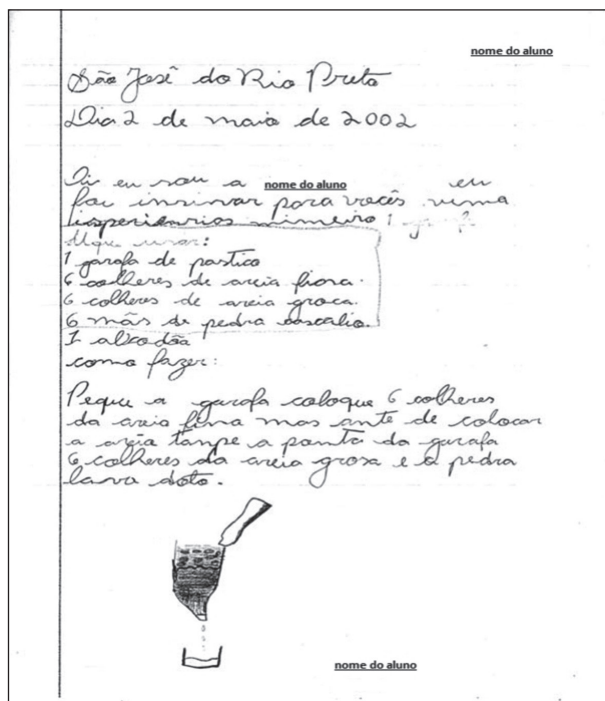 nome do aluno
São José do Rio Preto
Dia 2 de maio de 2002
Oi eu sou a nome do aluno eu
insinar para vocês uma
1
usar:
1 garafa de pastico
6 colheres de areia fiora.
6 colheres de areia groca.
6 mãs de pedra cascalio.
1 alcodão
como fazer:
Peque a garafa coloque 6 colheres
da areia fina mas ante de colocar
a areia tanpe a ponta da garafa
6 colheres da areia grosa e a pedra
lava doto.
nome do aluno